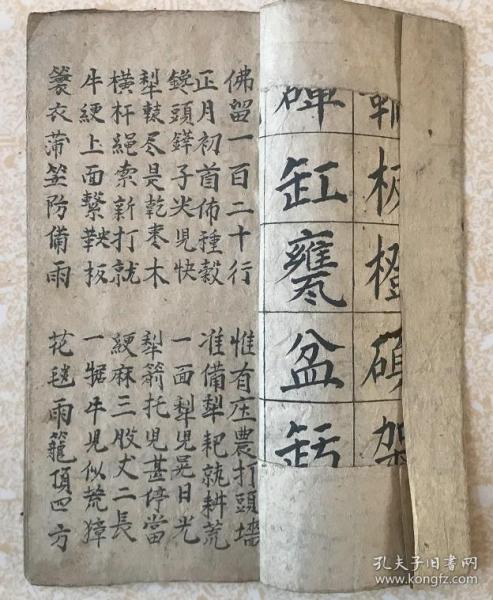 板橙碩架
缸甕盆
佛留一百二十行 惟有庄農打頭墻
正月初首佈種穀 准備犁耙就耕荒
鑱頭鏵子尖児快 一面犁児晃日光
犁轅尽是乾棗木 犁箭托児甚停當
横杆繩索新打就 綆麻三股丈二長
牛綆上面繫鞅板 一犋牛児似荒獐
簑衣蒲笠防備雨 花毬雨籠頂四方
孔夫子旧书网
www.kongfz.com